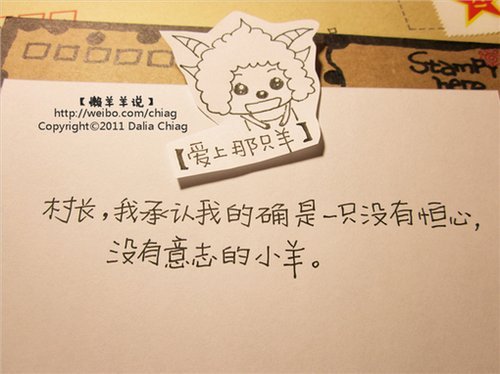 【懒羊羊说】
http://weibo.com/chiag
Copyright©2011 Dalia Chiag
【爱上那只羊】
村长，我承认我的确是一只没有恒心，
没有意志的小羊。